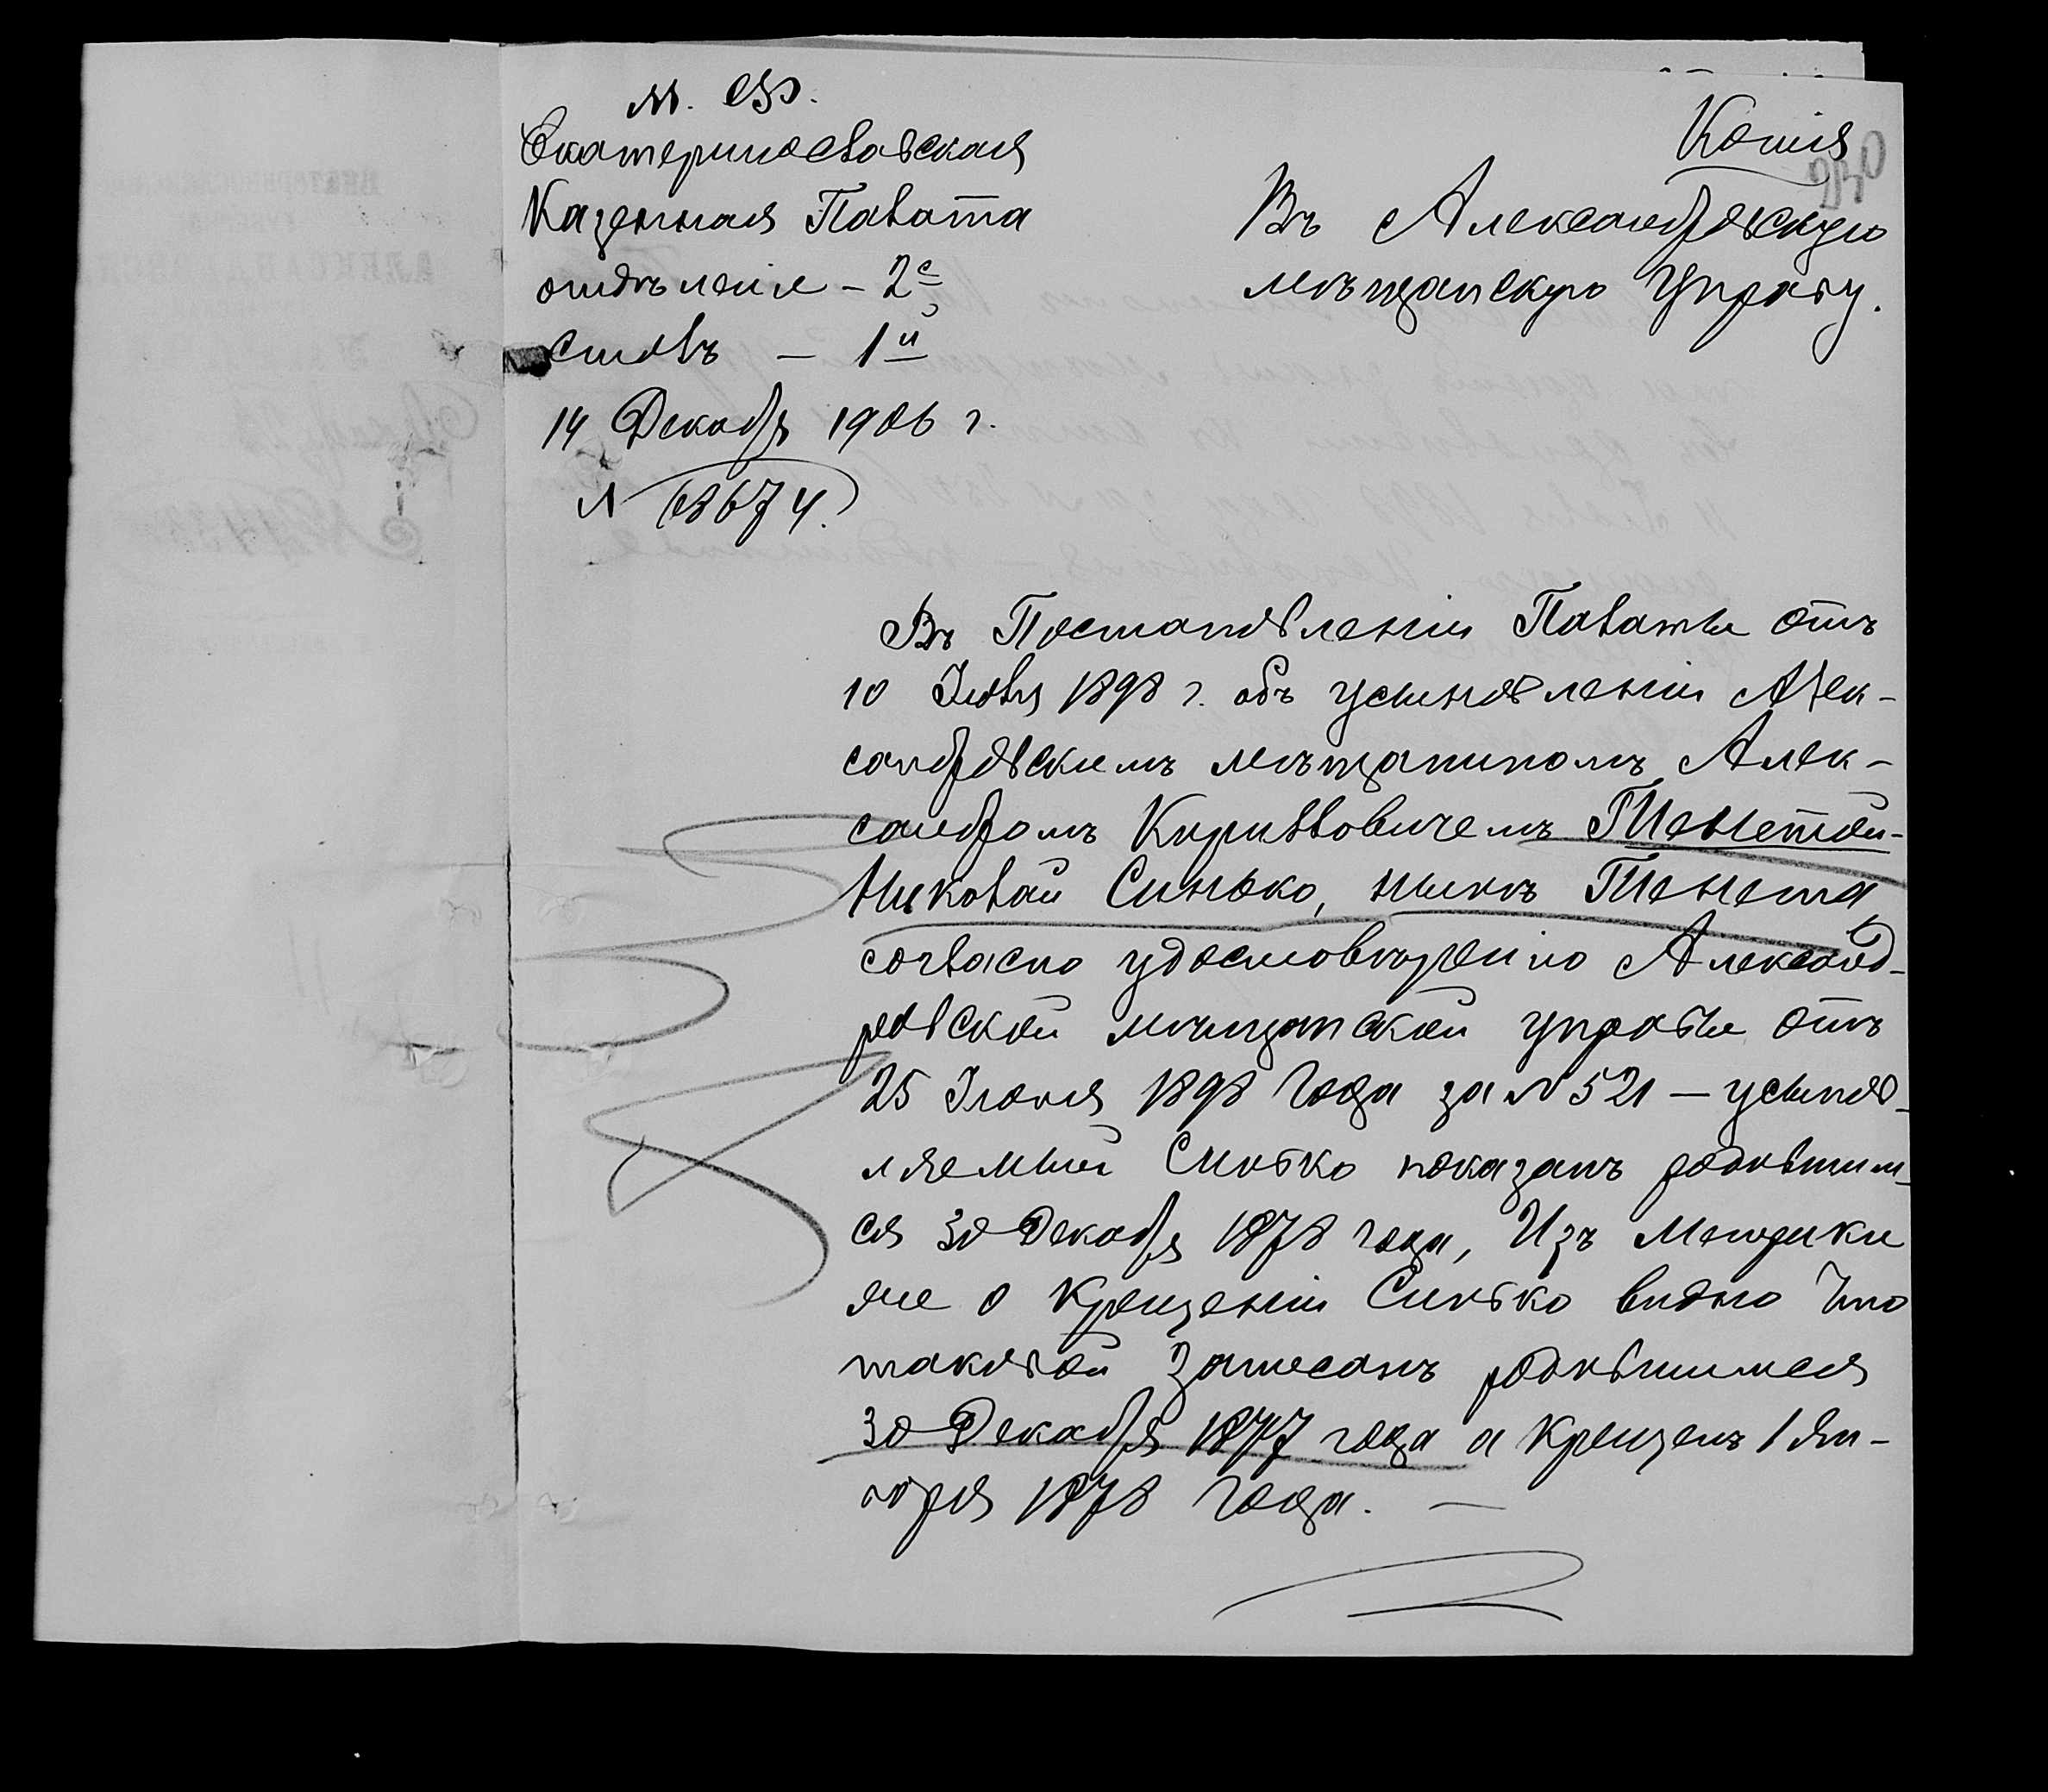 М. Ф.
Екатеринославская
Казенная Палата
отдѣленіе - 2е
столъ - 1й
14 Декабря 1906 г.
N 68674.
Копія
230
Въ Александровскую
мѣщанскую Управу.
Въ Постановленіи Палаты отъ
10 Іюля 1898 г. объ усыновленіи Алек-
сандровскимъ мѣщаниномъ Алек-
сандромъ Кирилловичемъ Тенетой-
Николай Синько, нынѣ Тенета
согласно удостовѣренію Александ-
ровской мѣщанской управы отъ
25 Іюня 1898 года за N 521 - усынов-
ляемый Синько показанъ родившим-
ся 30 Декабря 1878 года, Изъ Метрики
же о Крещеніи Синько видно что
таковой записанъ родившимся
30 Декабря 1877 года а крещенъ 1 Ян-
варя 1878 года. -